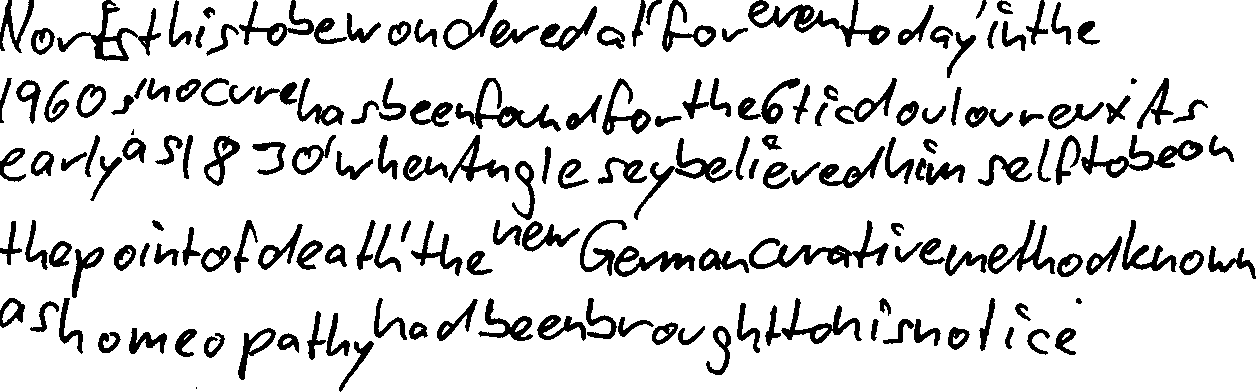 Nor is this to be wondered at, for even today, in the
1960s, no cure has been found for the tic douloureux. As
early as 1830, when Anglesey believed himself to be on
the point of death, the new German curative method known
as homeopathy had been brought to his notice.